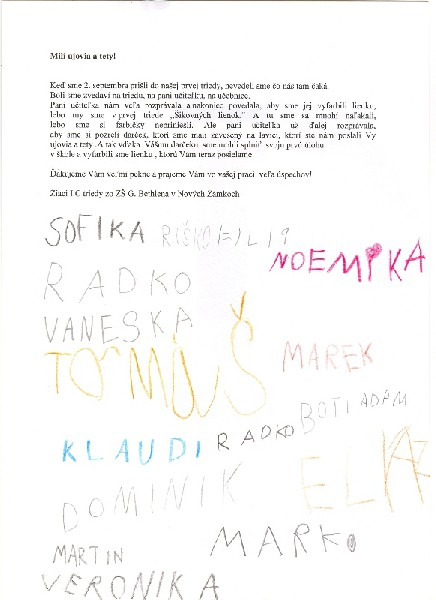 Milí ujovia a tety!
Keď sme 2. septembra prišli do našej prvej triedy, nevedeli sme čo nás tam čaká.
Boli sme zvedaví na triedu, na pani učiteľku, na učebnice.
Pani učiteľka nám veľa rozprávala a nakoniec povedala, aby sme jej vyfarbili lienku,
lebo my sme v prvej triede „Šikovných lienok“ A tu sme sa mnohí naľakali,
lebo sme si farbičky nepriniesli. Ale pani učiteľka už ďalej rozprávala,
aby sme si pozreli darček, ktorí sme mali zavesený na lavici, ktorí ste nám poslali Vy
ujovia a tety. A tak vďaka Vášmu darčeku sme mohli splniť svoju prvú úlohu
v škole a vyfarbili sme lienku, ktorú Vám teraz posielame.
Ďakujeme Vám veľmi pekne a prajeme Vám vo vašej práci veľa úspechov!
Žiaci I.C triedy zo ZŠ G. Bethlena v Nových Zámkoch
SOFIKA RIŠKO FILIP
NOEMIKA
RADKO
VANESKA
TOMÁŠ
MAREK
BOTI ADAM
KLAUDI RADKO
DOMINIK
ELKA
MARKO
MARTIN
VERONIKA